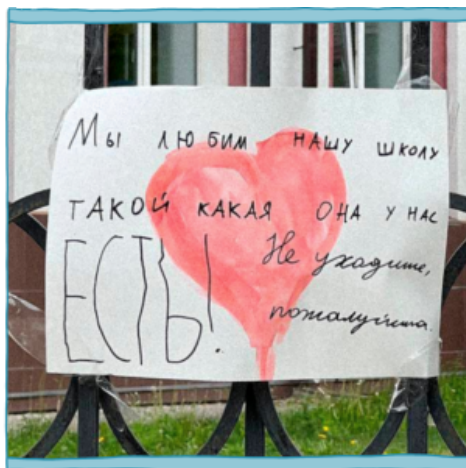 Мы любим нашу школу
такой какая она у нас
ЕСТЬ! Не уходите,
пожалуйста.